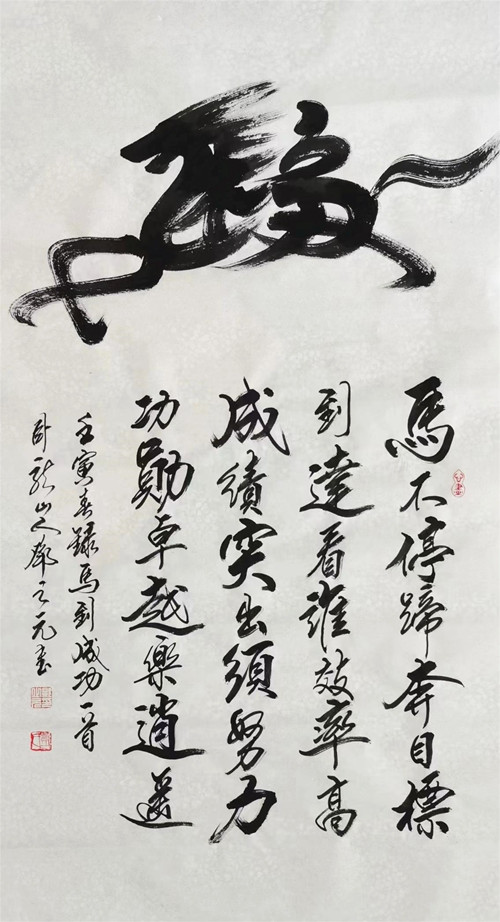 馬不停蹄奔目標
到達看誰效率高
成績突出須努力
功勛卓越樂逍遙
壬寅春録馬到成功一首
卧龍山人鄭之元書